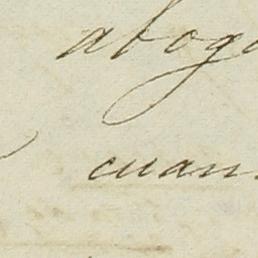 abog
cuan